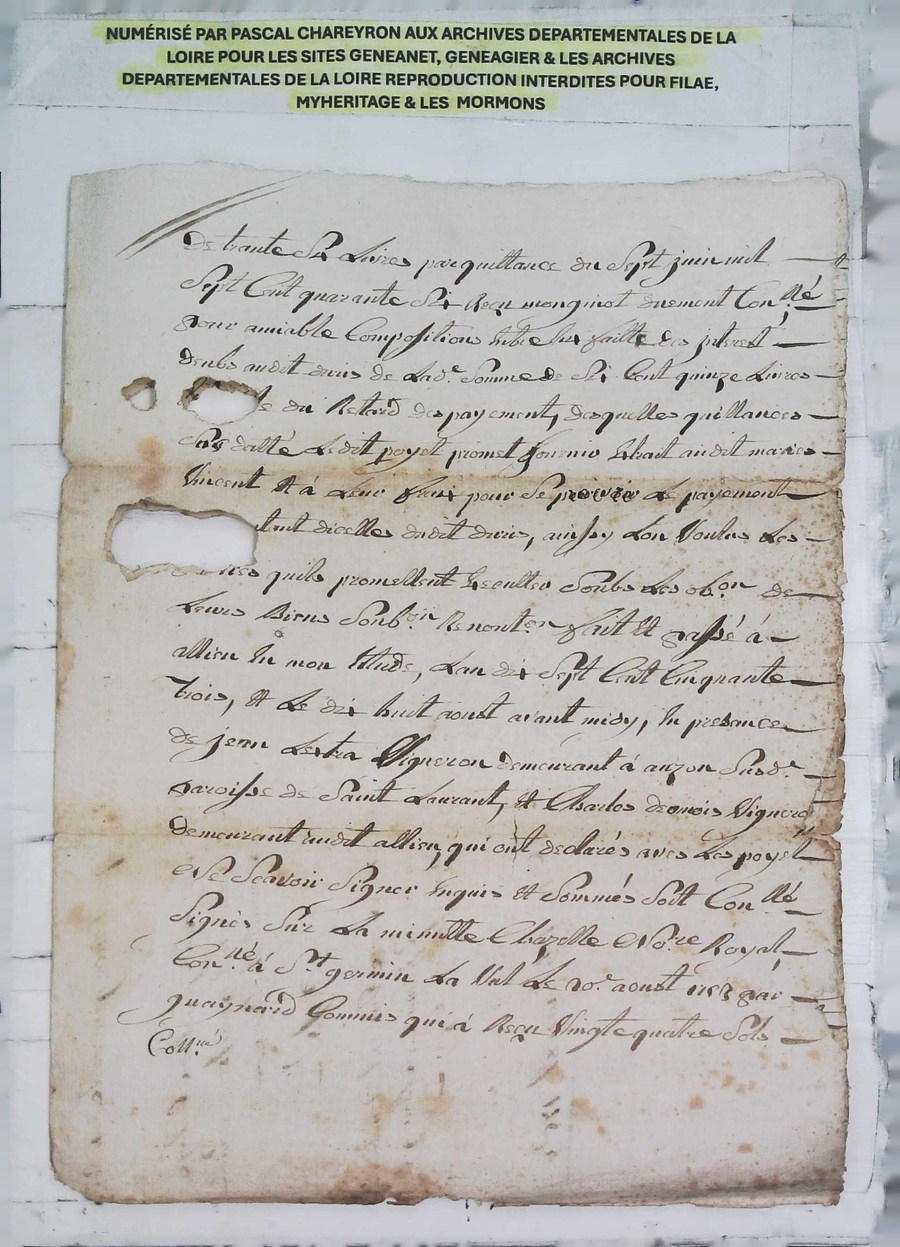 NUMÉRISÉ PAR PASCAL CHAREYRON AUX ARCHIVES DEPARTEMENTALES DE LA
LOIRE POUR LES SITES GENEANET, GENEAGIER & LES ARCHIVES
DEPARTEMENTALES DE LA LOIRE REPRODUCTION INTERDITES POUR FILAE,
MYHERITAGE & LES MORMONS
De trante Six Livres par quillance du Sept juin mil
Sept Cent quarante Six Reçu monginot duement Con.llé
pour amiable Composition entre eux faitte des jnterest
deubs audit duris de Lad.e Somme de Six Cent quinze Livres
du Retard des payement, desquelles quillances
Sus datté Ledit poyet promet fournir Extrait audit maries
Vincent Et à Leur fraix pour Se Le payement
dicelles dudit duris, ainsy Lon Voulus Les
quils promettent Executter Soubs Les ob.on de
Leurs Biens Soub.on Renont.on fait Et passé à
allieu En mon Etude, Lan dix Sept Cent Cinquante
Trois, Et Le dix huit aoust avant midy, En presance
De jean Lextra Vigneron demeurant à auzon Susd.e
paroisse de Saint Laurant, Et Charles demois Vigneron
demeurant audit allieu, qui ont declarés avec Les poyet
Ne Scavoir Signer Enquis Et Sommés Soit Con.llé
Signés Sur La minutte Chazelle No.re Royal
Con.llé à S.t germin La Val Le 20.e aoust 1753 par
guaynard Commis qui à Reçu Vingte quatre Sols
Coll.né